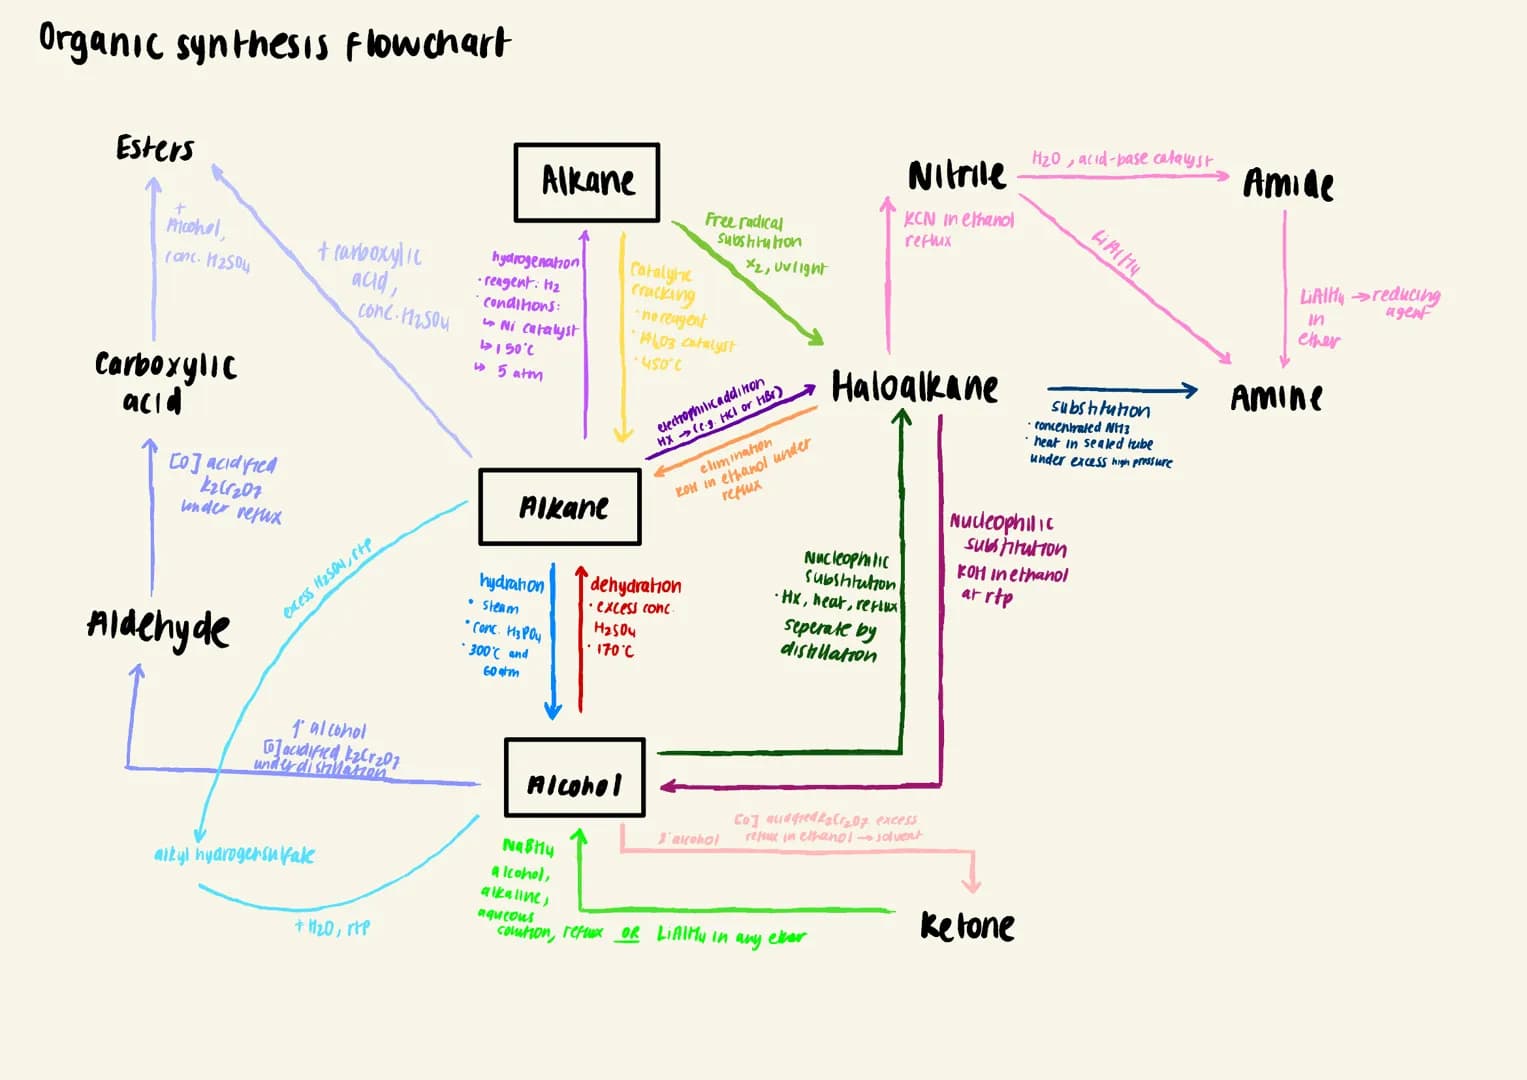 Organic synthesis flowchart
Esters
+
Alcohol,
conc. H2SO4
+ carboxylic
acid,
conc. H2SO4
Carboxylic
acid
[O] acidified
K2Cr2O7
under reflux
Aldehyde
1° alcohol
[O] acidified K2Cr2O7
under distillation
Alkane
hydrogenation
· reagent: H2
· conditions:
↳ Ni catalyst
↳ 150°C
↳ 5 atm
Catalytic
cracking
· no reagent
· Al2O3 catalyst
· 450°C
Free radical
substitution
X2, UV light
Alkane
electrophilic addition
HX → (e.g. HCl or HBr)
elimination
KOH in ethanol under
reflux
excess H2SO4, rtp
hydration
· steam
· conc. H3PO4
· 300°C and
60atm
dehydration
· excess conc.
H2SO4
· 170°C
Alcohol
alkyl hydrogensulfate
+ H2O, rtp
NaBH4
alcohol,
alkaline,
aqueous
solution, reflux OR LiAlH4 in any ether
2° alcohol
[O] acidified K2Cr2O7 excess
reflux in ethanol → solvent
Ketone
Haloalkane
Nucleophilic
substitution
· HX, heat, reflux
seperate by
distillation
Nucleophilic
substitution
KOH in ethanol
at rtp
Nitrile
KCN in ethanol
reflux
H2O, acid-base catalyst
Amide
LiAlH4
LiAlH4 → reducing
agent
in
ether
substitution
· concentrated NH3
· heat in sealed tube
under excess high pressure
Amine